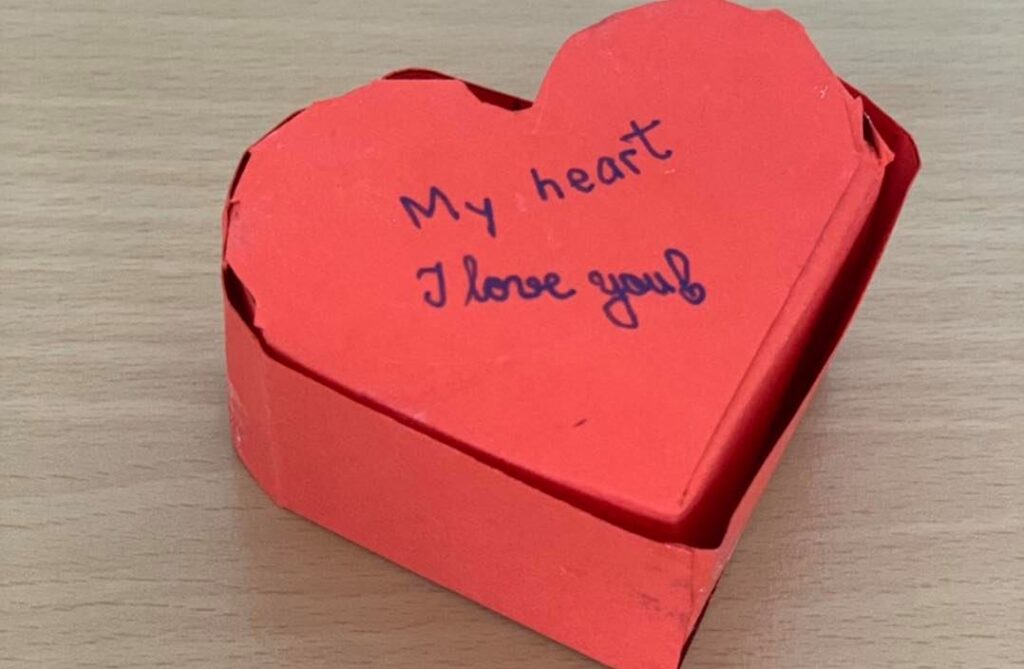 My heart
I love you